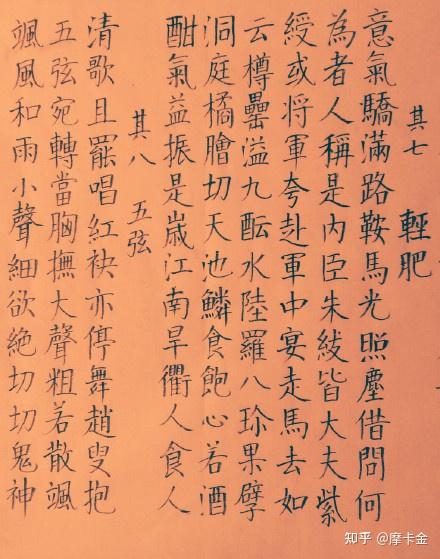 其七 輕肥
意氣驕滿路鞍馬光照塵借問何
為者人稱是内臣朱紱皆大夫紫
綬或将軍夸赴軍中宴走馬去如
云樽罍溢九酝水陸羅八珍果擘
洞庭橘膾切天池鱗食飽心若酒
酣氣益振是歲江南旱衢人食人
其八 五弦
清歌且罷唱紅袂亦停舞趙叟抱
五弦宛轉當胸撫大聲粗若散颯
颯風和雨小聲細欲絶切切鬼神
知乎 @摩卡金